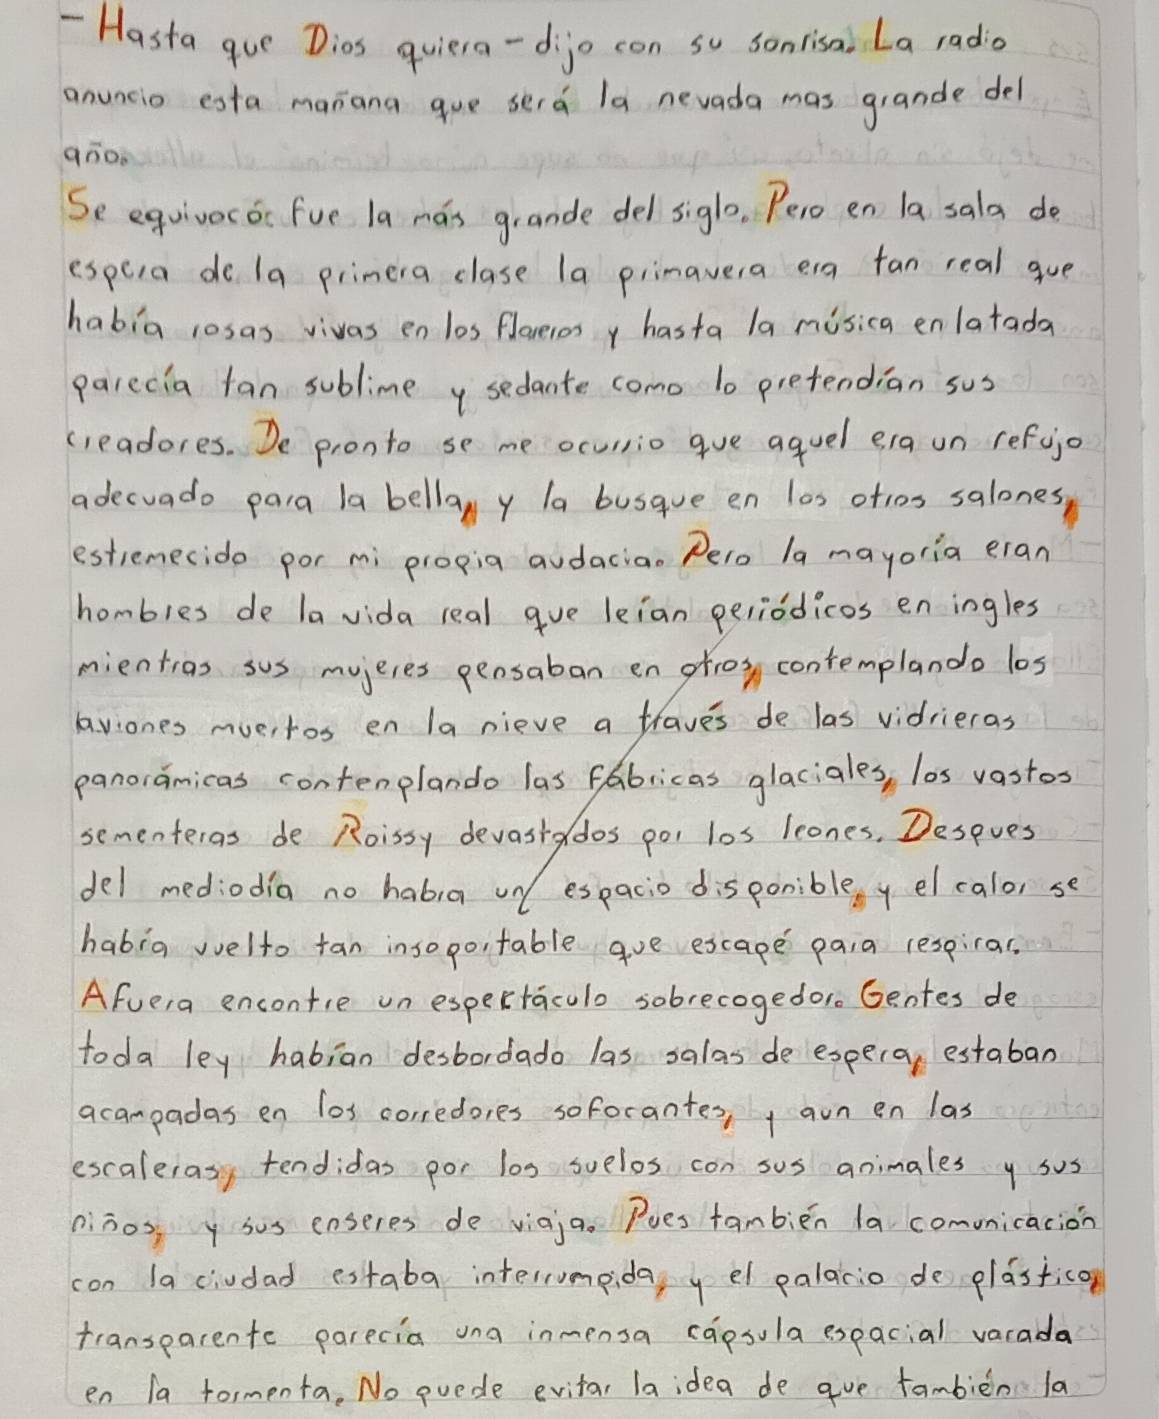 - Hasta que Dios quiera - dijo con su sonrisa. La radio
anuncio esta mañana que será la nevada mas grande del
año.
Se equivocó: fue la más grande del siglo. Pero en la sala de
espera de la primera clase la primavera era tan real que
había rosas vivas en los floreros y hasta la música enlatada
parecía tan sublime y sedante como lo pretendían sus
creadores. De pronto se me ocurrio que aquel era un refujo
adecuado para la bella, y la busque en los otros salones,
estremecido por mi propia audacia. Pero la mayoría eran
hombres de la vida real que leían periódicos en ingles
mientras sus mujeres pensaban en otros, contemplando los
aviones muertos en la nieve a través de las vidrieras
panorámicas contenplando las fábricas glaciales, los vastos
sementeras de Roissy devastados por los leones. Despues
del mediodía no habia un espacio disponible, y el calor se
habia vuelto tan insoportable que escapé para respirar.
Afuera encontre un espectáculo sobrecogedor. Gentes de
toda ley habían desbordado las salas de espera, estaban
acampadas en los corredores sofocantes, y aun en las
escaleras, tendidas por los suelos con sus animales y sus
niños, y sus enseres de viaja. Pues también la comunicación
con la ciudad estaba interrumpida, y el palacio de plástico,
transparente parecía una inmensa cápsula espacial varada
en la tormenta. No puede evitar la idea de que también la